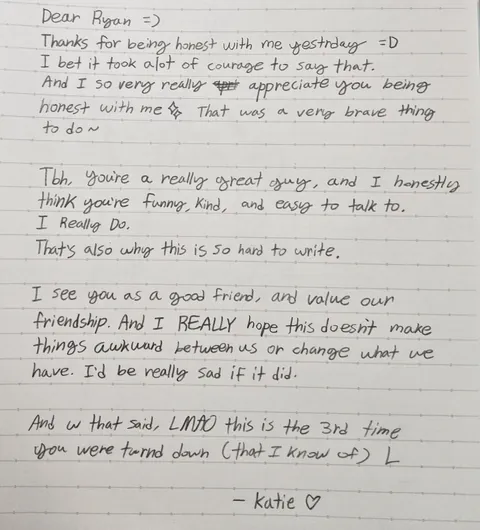 Dear Ryan =)
Thanks for being honest with me yestrday =D
I bet it took alot of courage to say that.
And I so very really appreciate you being
honest with me ✨ That was a very brave thing
to do ~
Tbh, you're a really great guy, and I honestly
think you're funny, kind, and easy to talk to.
I Really Do.
That's also why this is so hard to write.
I see you as a good friend, and value our
friendship. And I REALLY hope this doesn't make
things awkward between us or change what we
have. I'd be really sad if it did.
And w that said, LMAO this is the 3rd time
you were turnd down (that I know of) L
- Katie ♡